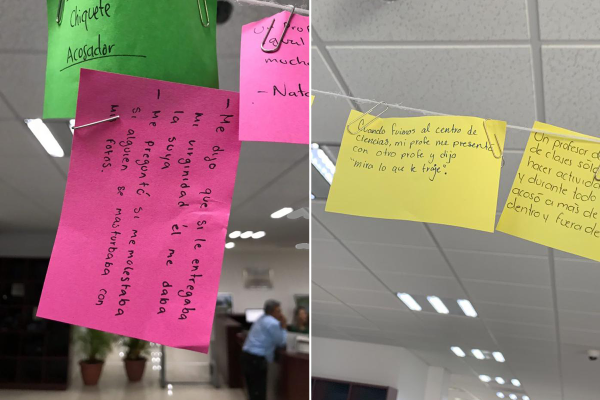 Chiquete
Acosador
laval
much
- Nata
- Me dijo que si le entregaba
mi virginidad él me daba
la suya
- Me preguntó si me molestaba
si alguien se masturbaba con
fotos.
Cuando fuimos al centro de
ciencias, mi profe me presentó
con otro profe y dijo
"mira lo que te traje".
Un profesor d
de clases sólo
hacer activida
y durante todo
acosó a más de
dentro y fuera de